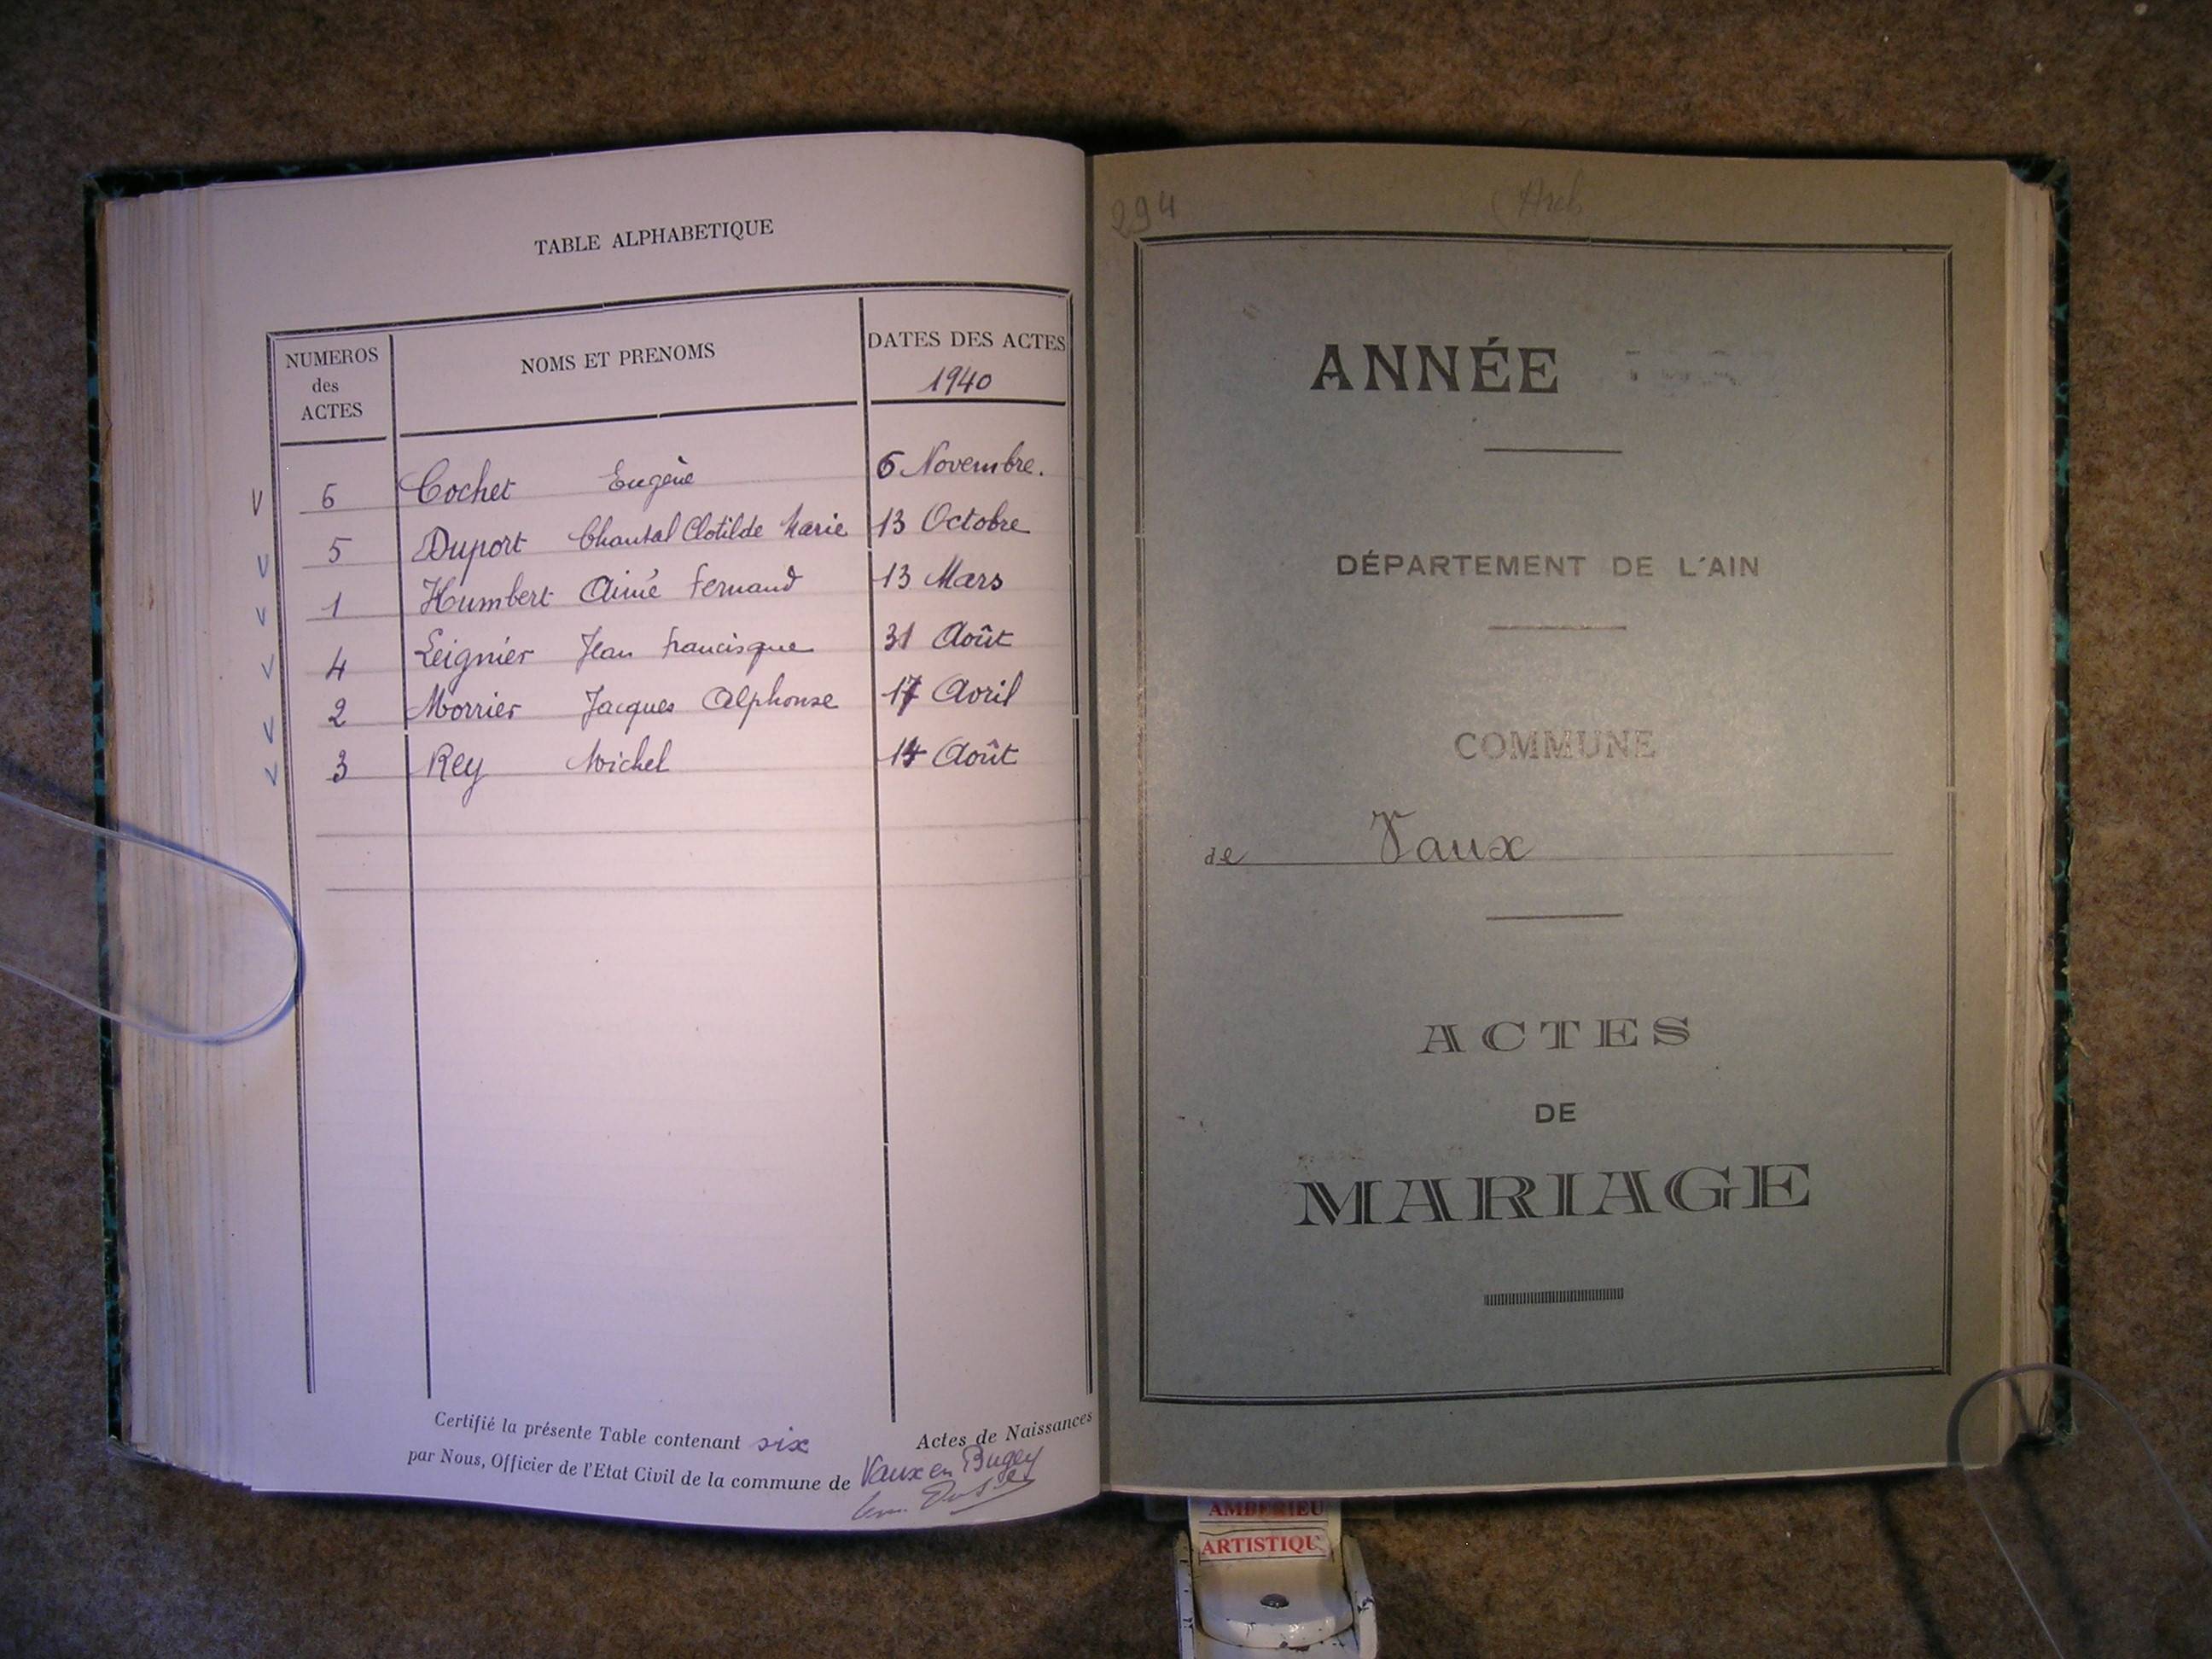 TABLE ALPHABETIQUE
NUMEROS
des
ACTES
NOMS ET PRENOMS
DATES DES ACTES
1940
V 6 Cochet Eugène 6 Novembre.
V 5 Duport Chantal Clotilde Marie 13 Octobre
V 1 Humbert Aimé Fernand 13 Mars
V 4 Leignier Jean Francisque 31 Août
V 2 Morrier Jacques Alphonse 17 Avril
V 3 Rey Michel 14 Août
Certifié la présente Table contenant six Actes de Naissances
par Nous, Officier de l'Etat Civil de la commune de Vaux en Bugey
294
ANNÉE
DÉPARTEMENT DE L'AIN
COMMUNE
de Vaux
ACTES
DE
MARIAGE
AMBERIEU
ARTISTIQU